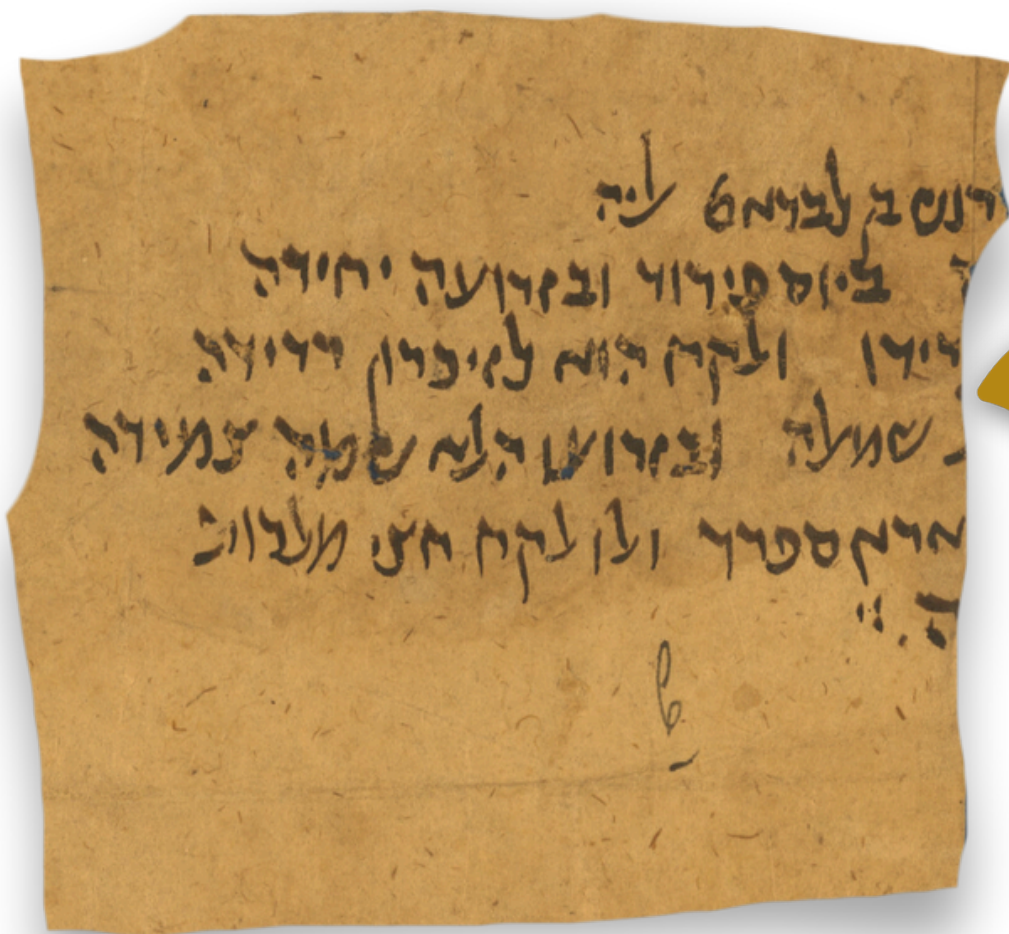 דנש ב לבראט ליה
ביום פירוד ובזרועה יחידה
דידו ולקח הוא לזיכרון רדידה
שמאלה ובזרועו הלא שמה צמידה
ארץ ספרד ולו לקח חצי מלכות
ה